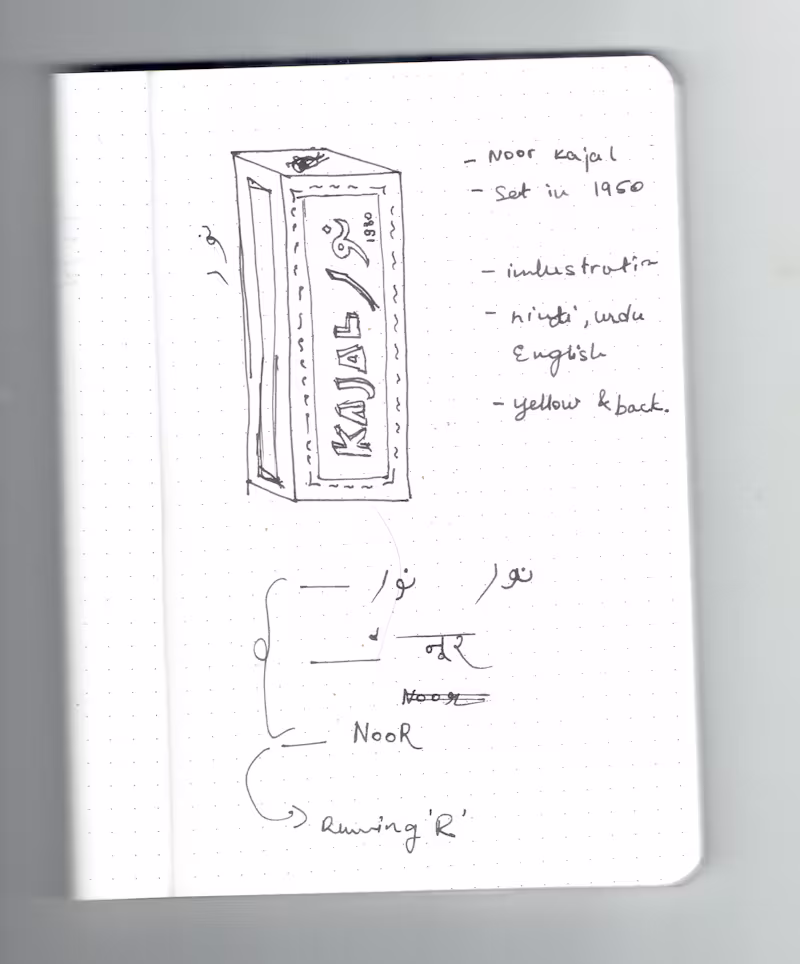 - Noor Kajal
- Set in 1950
- industration
- hindi, urdu
English
- yellow & back.
نور
نور
1980
KAJAL
نور نور
नूर
Noor
NOOR
Running 'R'